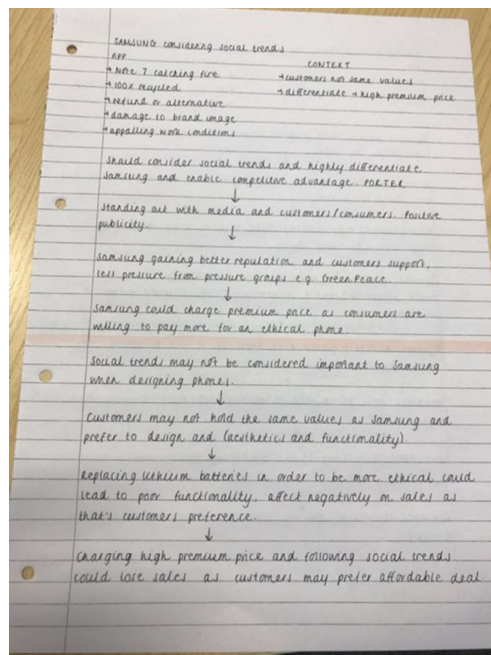 SAMSUNG considering social trends
APP
CONTEXT
→ Note 7 catching fire
→ customers not same values
→ 100% recycled
→ differentiate → high premium price
→ refund or alternative
→ damage to brand image
→ appalling work conditions
Should consider social trends and highly differentiate
Samsung and enable competitive advantage. PORTER
↓
Standing out with media and customers/consumers. Positive
publicity.
↓
Samsung gaining better reputation and customers support,
less pressure from pressure groups e.g. GreenPeace
↓
Samsung could charge premium price as consumers are
willing to pay more for an ethical phone.
Social trends may not be considered important to Samsung
when designing phones.
↓
Customers may not hold the same values as Samsung and
prefer to design and (aesthetics and functionality)
↓
Replacing lithium batteries in order to be more ethical could
lead to poor functionality. affect negatively on sales as
that's customers preference.
↓
Charging high premium price and following social trends
could lose sales as customers may prefer affordable deal